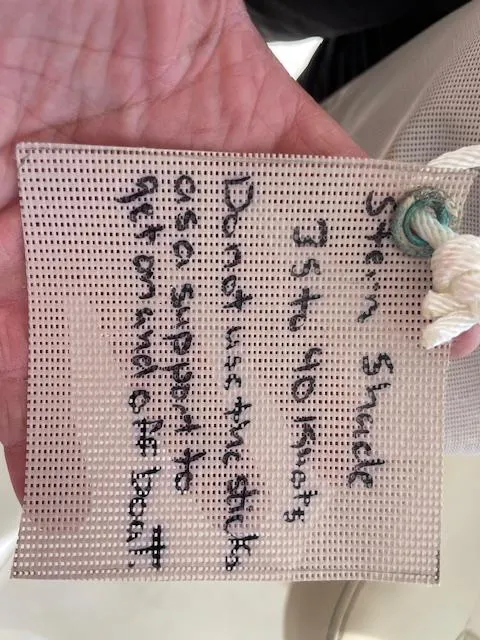 Stern Shade
35 to 40 knots
Do not use the sticks
as a support to
get on and off boat.